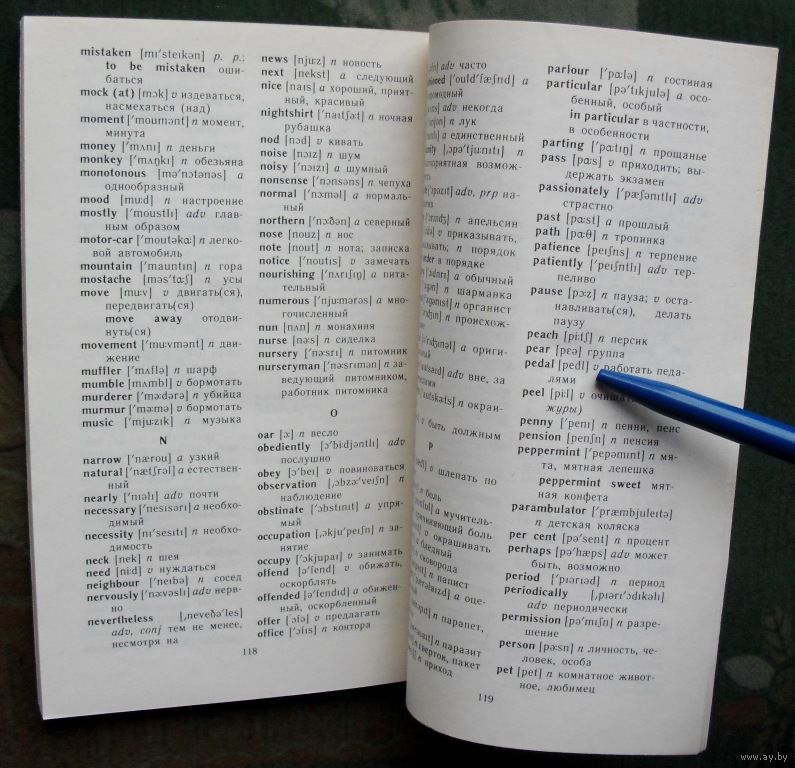 mistaken [mɪ'steɪkən] p. p.:
to be mistaken оши-
баться
mock (at) [mɔk] v издеваться,
насмехаться (над)
moment ['moumənt] n момент,
минута
money ['mʌnɪ] n деньги
monkey ['mʌŋkɪ] n обезьяна
monotonous [mə'nɔtənəs] a
однообразный
mood [mu:d] n настроение
mostly ['moustlɪ] adv глав-
ным образом
motor-car ['moutəkɑ:] n легко-
вой автомобиль
mountain ['mauntɪn] n гора
mostache [məs'tɑ:ʃ] n усы
move [mu:v] v двигать(ся),
передвигать(ся)
move away отодви-
нуть(ся)
movement ['mu:vmənt] n дви-
жение
muffler ['mʌflə] n шарф
mumble [mʌmbl] v бормотать
murderer ['mə:dərə] n убийца
murmur ['mə:mə] v бормотать
music ['mju:zɪk] n музыка
N
narrow ['nærou] a узкий
natural ['nætʃrəl] a естествен-
ный
nearly ['nɪəlɪ] adv почти
necessary ['nesɪsərɪ] a необхо-
димый
necessity [nɪ'sesɪtɪ] n необхо-
димость
neck [nek] n шея
need [ni:d] v нуждаться
neighbour ['neɪbə] n сосед
nervously ['nə:vəslɪ] adv нерв-
но
nevertheless [,nevəðə'les]
adv, conj тем не менее,
несмотря на
news [nju:z] n новость
next [nekst] a следующий
nice [naɪs] a хороший, прият-
ный, красивый
nightshirt ['naɪtʃə:t] n ночная
рубашка
nod [nɔd] v кивать
noise [nɔɪz] n шум
noisy ['nɔɪzɪ] a шумный
nonsense ['nɔnsəns] n чепуха
normal ['nɔ:məl] a нормаль-
ный
northern ['nɔ:ðən] a северный
nose [nouz] n нос
note [nout] n нота; записка
notice ['noutɪs] v замечать
nourishing ['nʌrɪʃɪŋ] a пита-
тельный
numerous ['nju:mərəs] a мно-
гочисленный
nun [nʌn] n монахиня
nurse [nə:s] n сиделка
nursery ['nə:srɪ] n питомник
nurseryman ['nə:srɪmən] n за-
ведующий питомником,
работник питомника
O
oar [ɔ:] n весло
obediently [ə'bi:djəntlɪ] adv
послушно
obey [ə'beɪ] v повиноваться
observation [,ɔbzə'veɪʃn] n
наблюдение
obstinate ['ɔbstɪnɪt] a упря-
мый
occupation [,ɔkju'peɪʃn] n за-
нятие
occupy ['ɔkjupaɪ] v занимать
offend [ə'fend] v обижать,
оскорблять
offended [ə'fendɪd] a обижен-
ный, оскорбленный
offer ['ɔfə] v предлагать
office ['ɔfɪs] n контора
118
adv часто
['ould'fæʃnd] a
adv некогда
n лук
a единственный
[,ɔpə'tju:nɪtɪ] n
возмож-
adv, prp на-
n апельсин
v приказывать,
n порядок
в порядке
a обычный
n шарманка
n органист
n происхож-
a ориги-
adv вне, за
n окраи-
быть должным
P
v шлепать по
n боль
a мучитель-
боль
v окрашивать
a бледный
n папист
a оце-
n парапет,
n паразит
пакет
n приход
parlour ['pɑ:lə] n гостиная
particular [pə'tɪkjulə] a осо-
бенный, особый
in particular в частности,
в особенности
parting ['pɑ:tɪŋ] n прощанье
pass [pɑ:s] v приходить; вы-
держать экзамен
passionately ['pæʃənɪtlɪ] adv
страстно
past [pɑ:st] a прошлый
path [pɑ:θ] n тропинка
patience [peɪʃns] n терпение
patiently ['peɪʃntlɪ] adv тер-
пеливо
pause [pɔ:z] n пауза; v оста-
навливать(ся), делать
паузу
peach [pi:tʃ] n персик
pear [pɛə] группа
pedal [pedl] v работать педа-
лями
peel [pi:l] v
журы)
penny ['penɪ] n пенни, пенс
pension [penʃn] n пенсия
peppermint ['pepəmɪnt] n мя-
та, мятная лепешка
peppermint sweet мят-
ная конфета
parambulator ['præmbjuleɪtə]
n детская коляска
per cent [pə'sent] n процент
perhaps [pə'hæps] adv может
быть, возможно
period ['pɪərɪəd] n период
periodically [,pɪərɪ'ɔdɪkəlɪ]
adv периодически
permission [pə'mɪʃn] n разре-
шение
person [pə:sn] n личность, че-
ловек, особа
pet [pet] n комнатное живот-
ное, любимец
119
www.ay.by